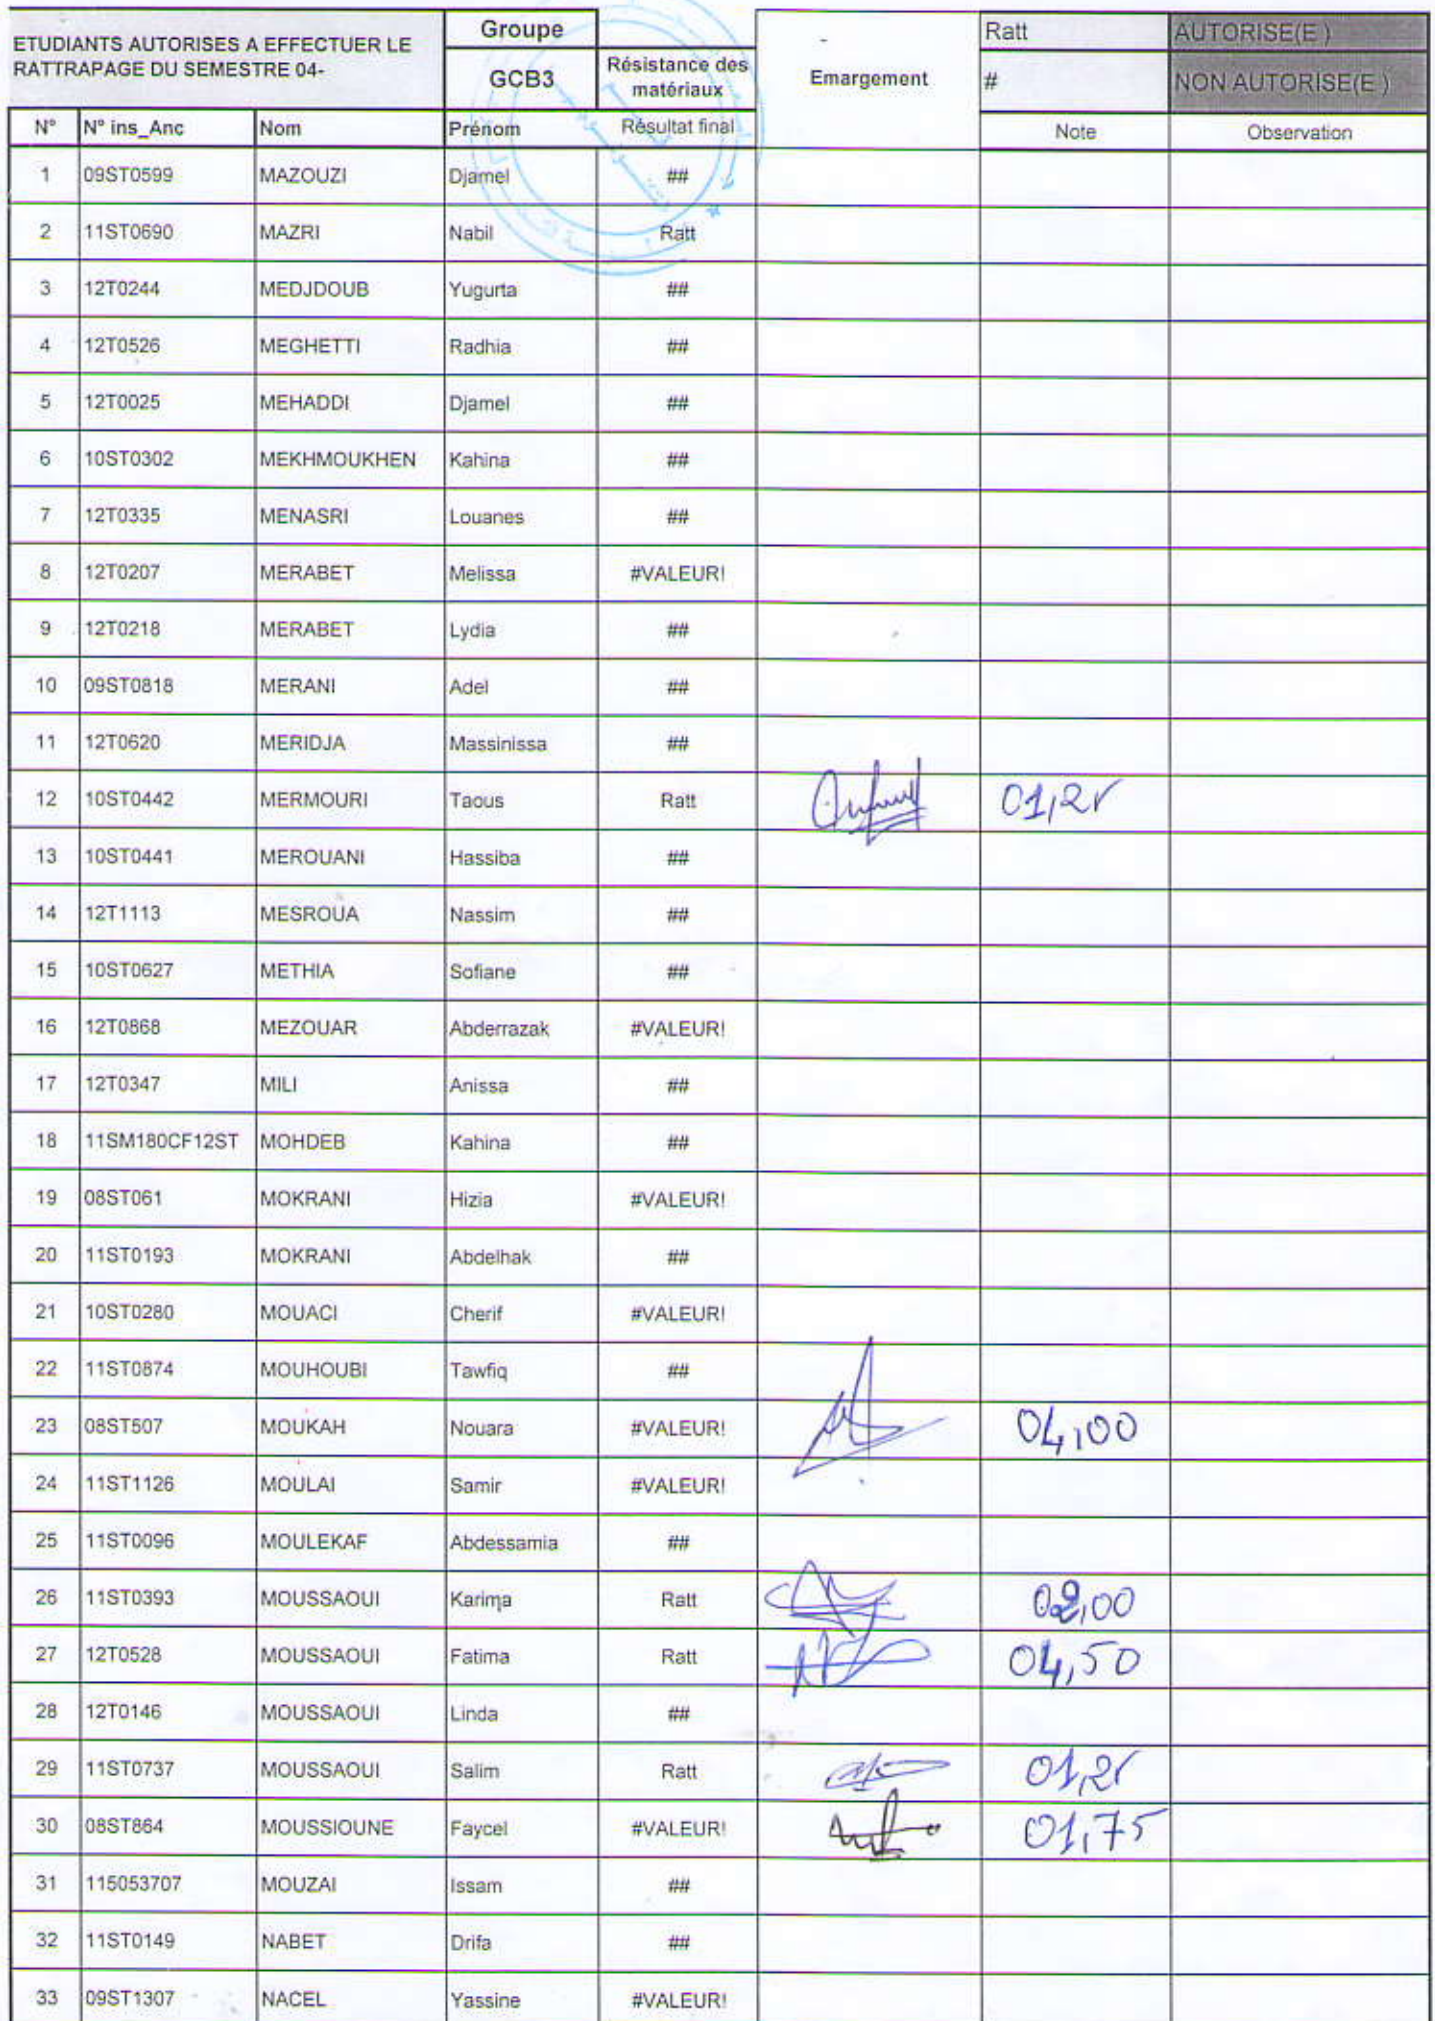 ETUDIANTS AUTORISES A EFFECTUER LE
RATTRAPAGE DU SEMESTRE 04-
Groupe
GCB3
Résistance des
matériaux
Emargement
Ratt AUTORISE(E )
# NON AUTORISE(E )
N° N° ins_Anc Nom Prénom Résultat final Note Observation
1 09ST0599 MAZOUZI Djamel ##
2 11ST0690 MAZRI Nabil Ratt
3 12T0244 MEDJDOUB Yugurta ##
4 12T0526 MEGHETTI Radhia ##
5 12T0025 MEHADDI Djamel ##
6 10ST0302 MEKHMOUKHEN Kahina ##
7 12T0335 MENASRI Louanes ##
8 12T0207 MERABET Melissa #VALEUR!
9 12T0218 MERABET Lydia ##
10 09ST0818 MERANI Adel ##
11 12T0620 MERIDJA Massinissa ##
12 10ST0442 MERMOURI Taous Ratt 01,25
13 10ST0441 MEROUANI Hassiba ##
14 12T1113 MESROUA Nassim ##
15 10ST0627 METHIA Sofiane ##
16 12T0868 MEZOUAR Abderrazak #VALEUR!
17 12T0347 MILI Anissa ##
18 11SM180CF12ST MOHDEB Kahina ##
19 08ST061 MOKRANI Hizia #VALEUR!
20 11ST0193 MOKRANI Abdelhak ##
21 10ST0280 MOUACI Cherif #VALEUR!
22 11ST0874 MOUHOUBI Tawfiq ##
23 08ST507 MOUKAH Nouara #VALEUR! 04,00
24 11ST1126 MOULAI Samir #VALEUR!
25 11ST0096 MOULEKAF Abdessamia ##
26 11ST0393 MOUSSAOUI Karima Ratt 02,00
27 12T0528 MOUSSAOUI Fatima Ratt 04,50
28 12T0146 MOUSSAOUI Linda ##
29 11ST0737 MOUSSAOUI Salim Ratt 01,25
30 08ST864 MOUSSIOUNE Faycel #VALEUR! 01,75
31 115053707 MOUZAI Issam ##
32 11ST0149 NABET Drifa ##
33 09ST1307 NACEL Yassine #VALEUR!